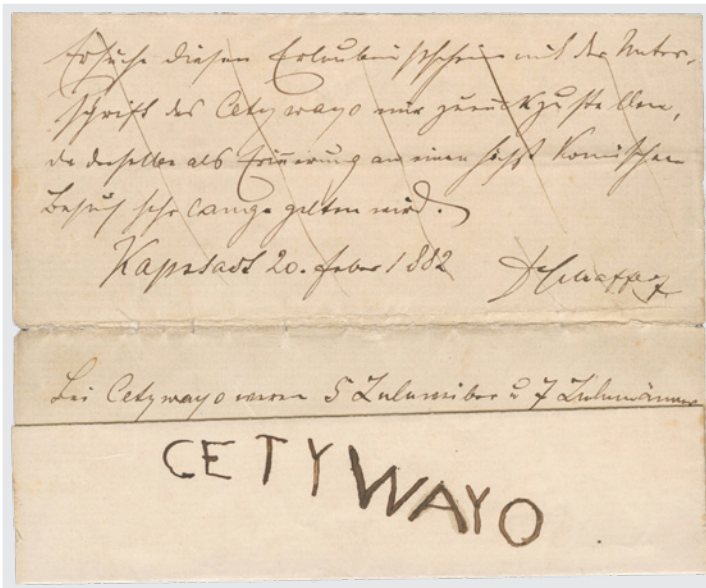 Ersuche diesen Erlaubnisschein mit der Unter-
schrift des Cetywayo mir zurückzustellen,
da derselbe als Erinnerung an einen höchst komischen
Besuch sehr lange gelten wird.
Kapstadt 20. Feber 1882
Bei Cetywayo waren 5 Zuluweiber u 7 Zulumänner
CETYWAYO